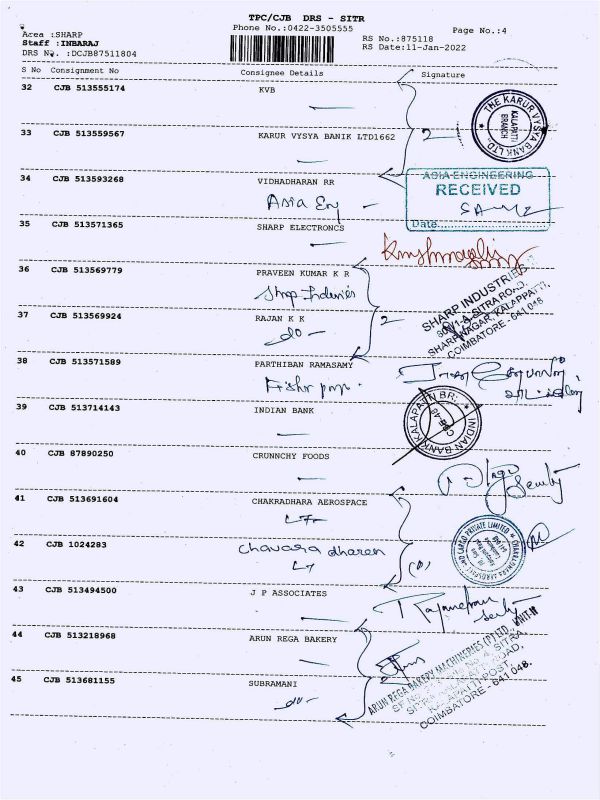 TPC/CJB DRS - SITR
Phone No.:0422-3505555
Page No.:4
Area :SHARP
Staff :INBARAJ
DRS No. :DCJB87511804
RS No.:875118
RS Date:11-Jan-2022
S No Consignment No Consignee Details Signature
32 CJB 513555174 KVB
THE KARUR VYSYA BANK LTD
KALAPATTI
BRANCH
33 CJB 513559567 KARUR VYSYA BANIK LTD1662 2
34 CJB 513593268 VIDHADHARAN RR
Asia Eng
ASIA ENGINEERING
RECEIVED
Date
35 CJB 513571365 SHARP ELECTRONCS
36 CJB 513569779 PRAVEEN KUMAR K R
Sharp Industries
SHARP INDUSTRIES
SITRA ROAD,
SHARP NAGAR, KALAPPATTI,
COIMBATORE - 641 048
37 CJB 513569924 RAJAN K K 2
do
38 CJB 513571589 PARTHIBAN RAMASAMY
39 CJB 513714143 INDIAN BANK
INDIAN BANK KALAPATTI BR.
40 CJB 87890250 CRUNNCHY FOODS
41 CJB 513691604 CHAKRADHARA AEROSPACE
42 CJB 1024283
CHAKRADHARA AEROSPACE AND CARGO PRIVATE LIMITED
43 CJB 513494500 J P ASSOCIATES
44 CJB 513218968 ARUN REGA BAKERY
ARUN REGA BAKERY MACHINERIES (P) LTD., UNIT-II
KALAPATTI POST,
COIMBATORE - 641 048.
45 CJB 513681155 SUBRAMANI
do